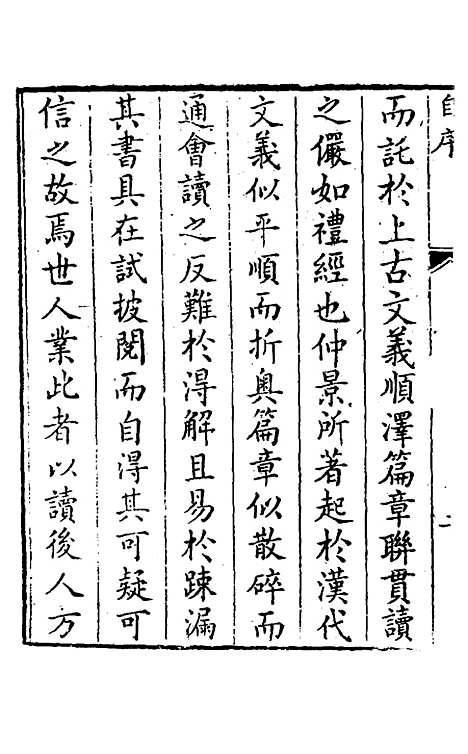 自序
而託於上古文義順澤篇章聯貫讀
之儼如禮經也仲景所著起於漢代
文義似平順而折奧篇章似散碎而
通會讀之反難於得解且易於踈漏
其書具在試披閱而自得其可疑可
信之故焉世人業此者以讀後人方